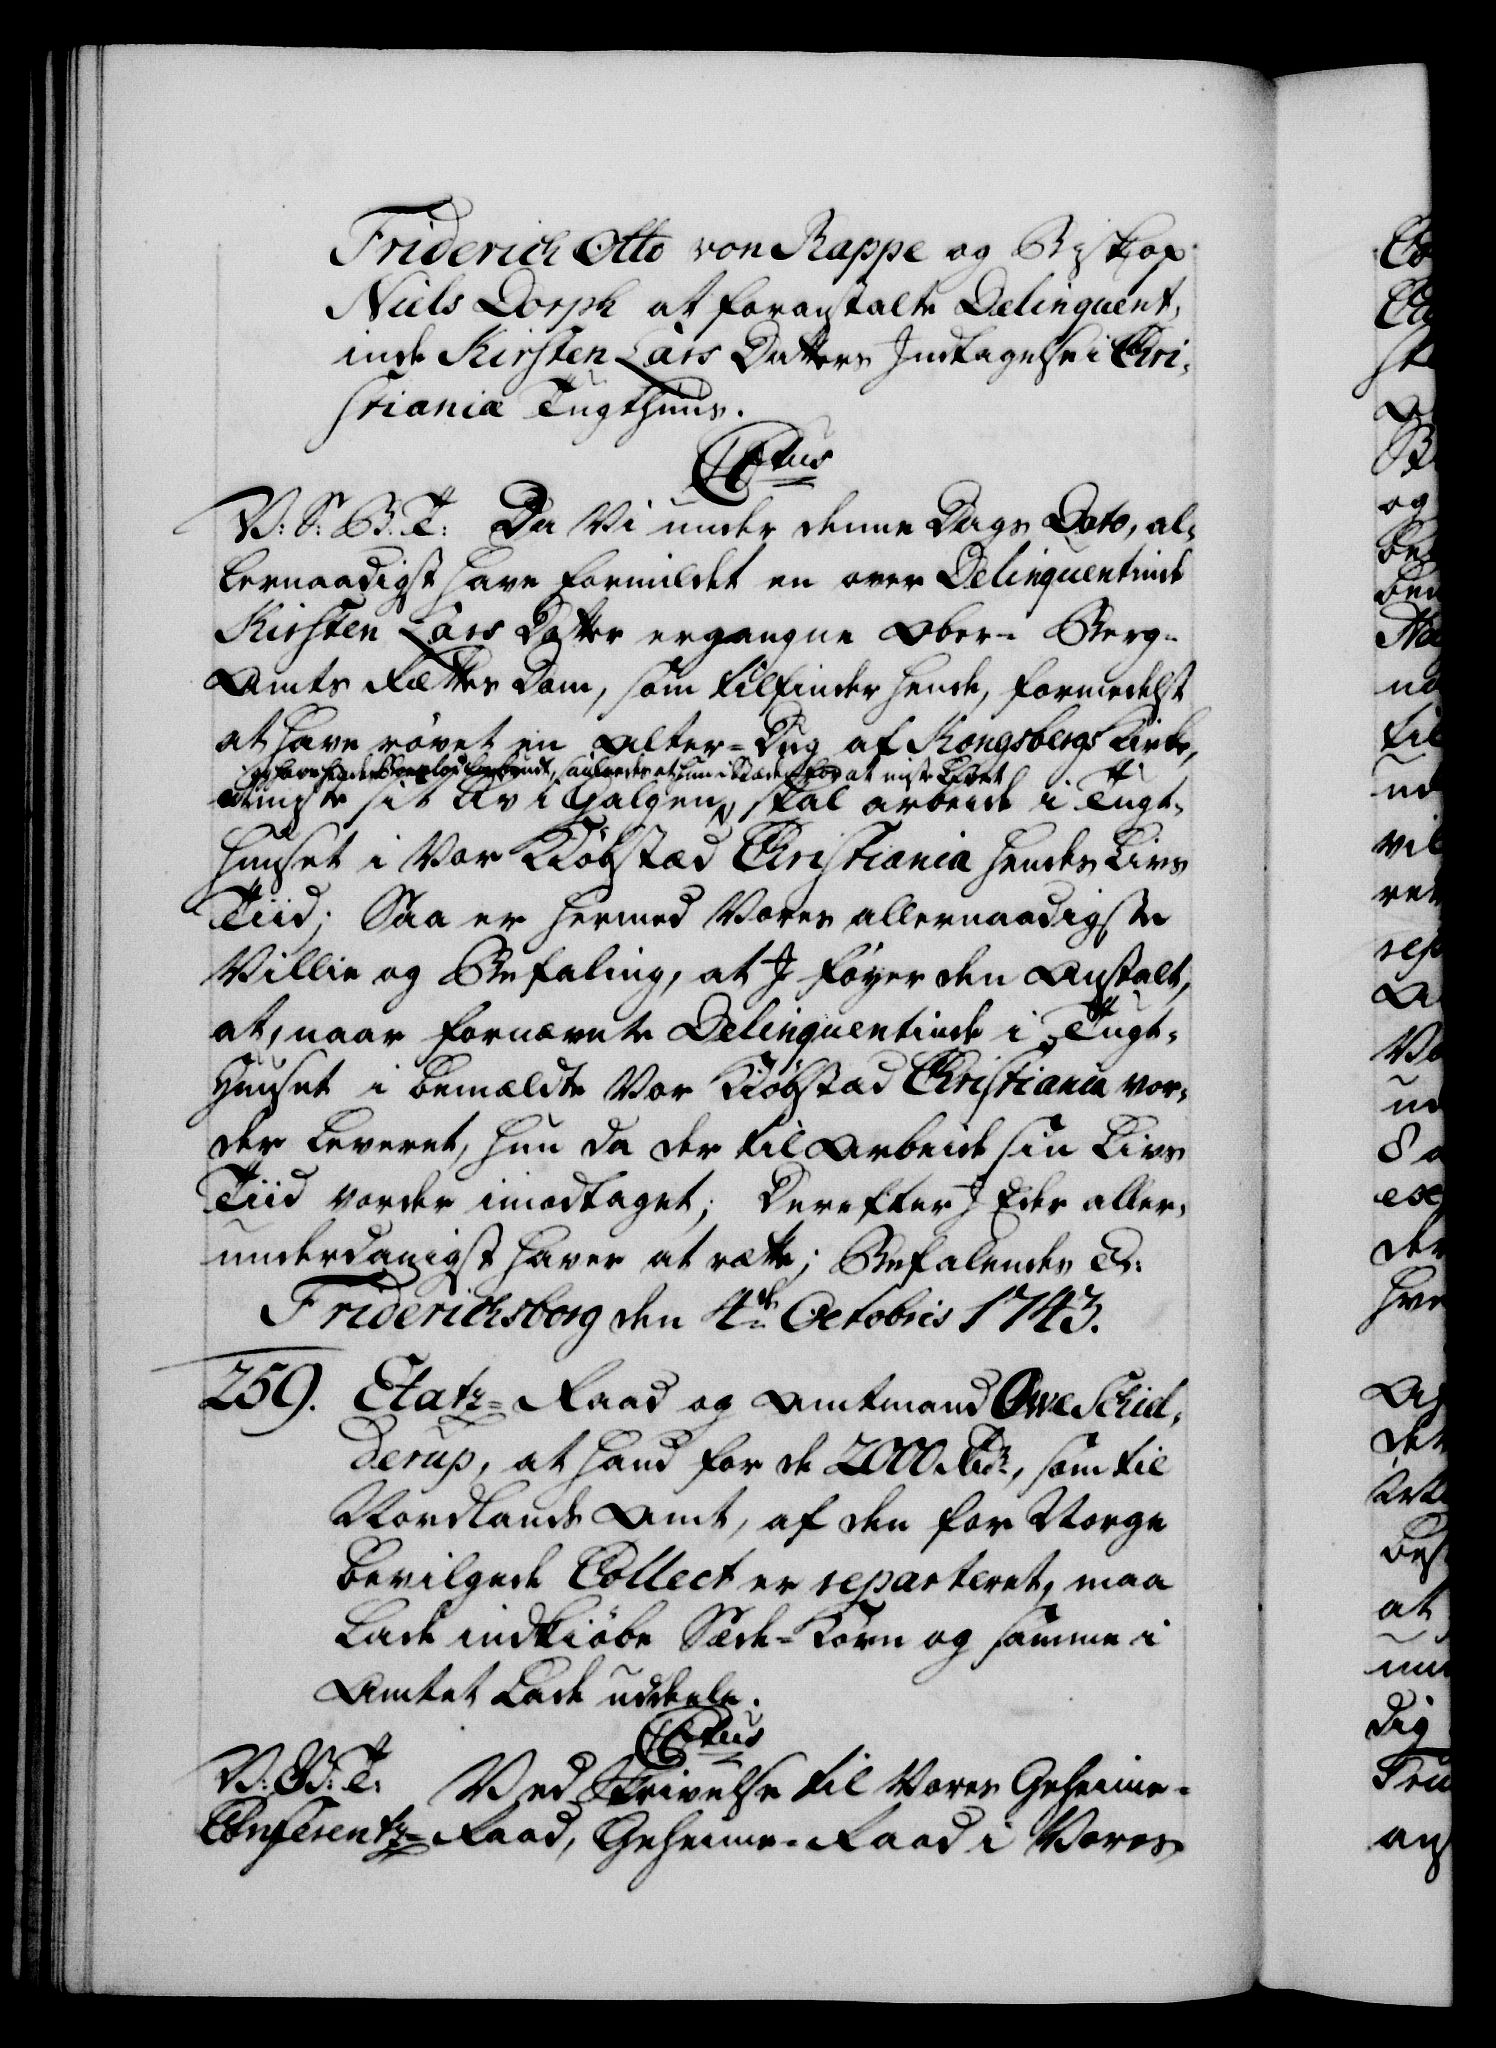 Friderich Otto von Rappe og Biskop
Niels Dorph at foranstalte Delinquent,
inde Kirsten Lars Datters Indtagelse i Chri,
stianiæ Tugthuus.
C6tus
V: S: B: T: Da Vi under denne Dags Dato, al,
lernaadigst have formildet en over Delinquentinde
Kirsten Lars Datter ergangne Ober- Berg-
Amts Rettes Dom, som tilfinder hende, formedelst
at have røvet en Alter-Dug af Kongsbergs Kirke,
saaledes at hun i Stæden for at miste Livet
at miste sit Liv i Galgen, skal arbeide i Tugt,
huuset i Vor Kiøbstæd Christiania hendes Livs
Tiid; Saa er hermed Vores allernaadigste
Villie og Befaling, at I føyer den Anstalt,
at, naar fornævnte Delinquentinde i Tugt,
Huuset i bemældte Vor Kiøbstæd Christiania vor,
der leveret, hun da der til Arbeide sin Livs
Tiid vorder imodtaget; Derefter I Eder aller,
underdanigst haver at rette; Befalendes D:
Friderichsborg den 4de Octobris 1743.
259. Etatz-Raad og Amtmand Ove Schiel,
derup, at hand for de 2000 Rdr, som til
Nordlands Amt, af den for Norge
bevilgede Collect er reparteret, maa
lade indkiøbe Sæde-Korn og samme i
Amtet lade uddeele.
C6tus
V: G: T: Ved Skrivelse til Vores Geheime-
Conferentz-Raad, Geheime-Raad i Vores